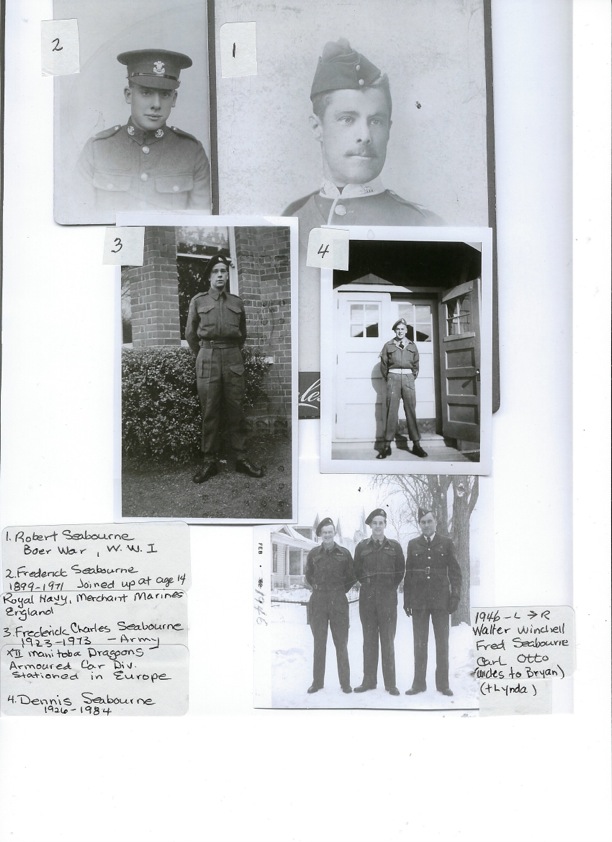 2
1
3
4
1. Robert Seabourne
Boer War, W.W.I
2. Frederick Seabourne
1899-1971 Joined up at age 14
Royal Navy, Merchant Marines
England
3. Frederick Charles Seabourne
1923-1973 - Army
XII Manitoba Dragoons
Armoured Car Div.
Stationed in Europe
4. Dennis Seabourne
1926-1984
FEB • 1946
1946 - L → R
Walter Winchell
Fred Seabourne
Carl Otto
(uncles to Bryan)
(+Lynda)